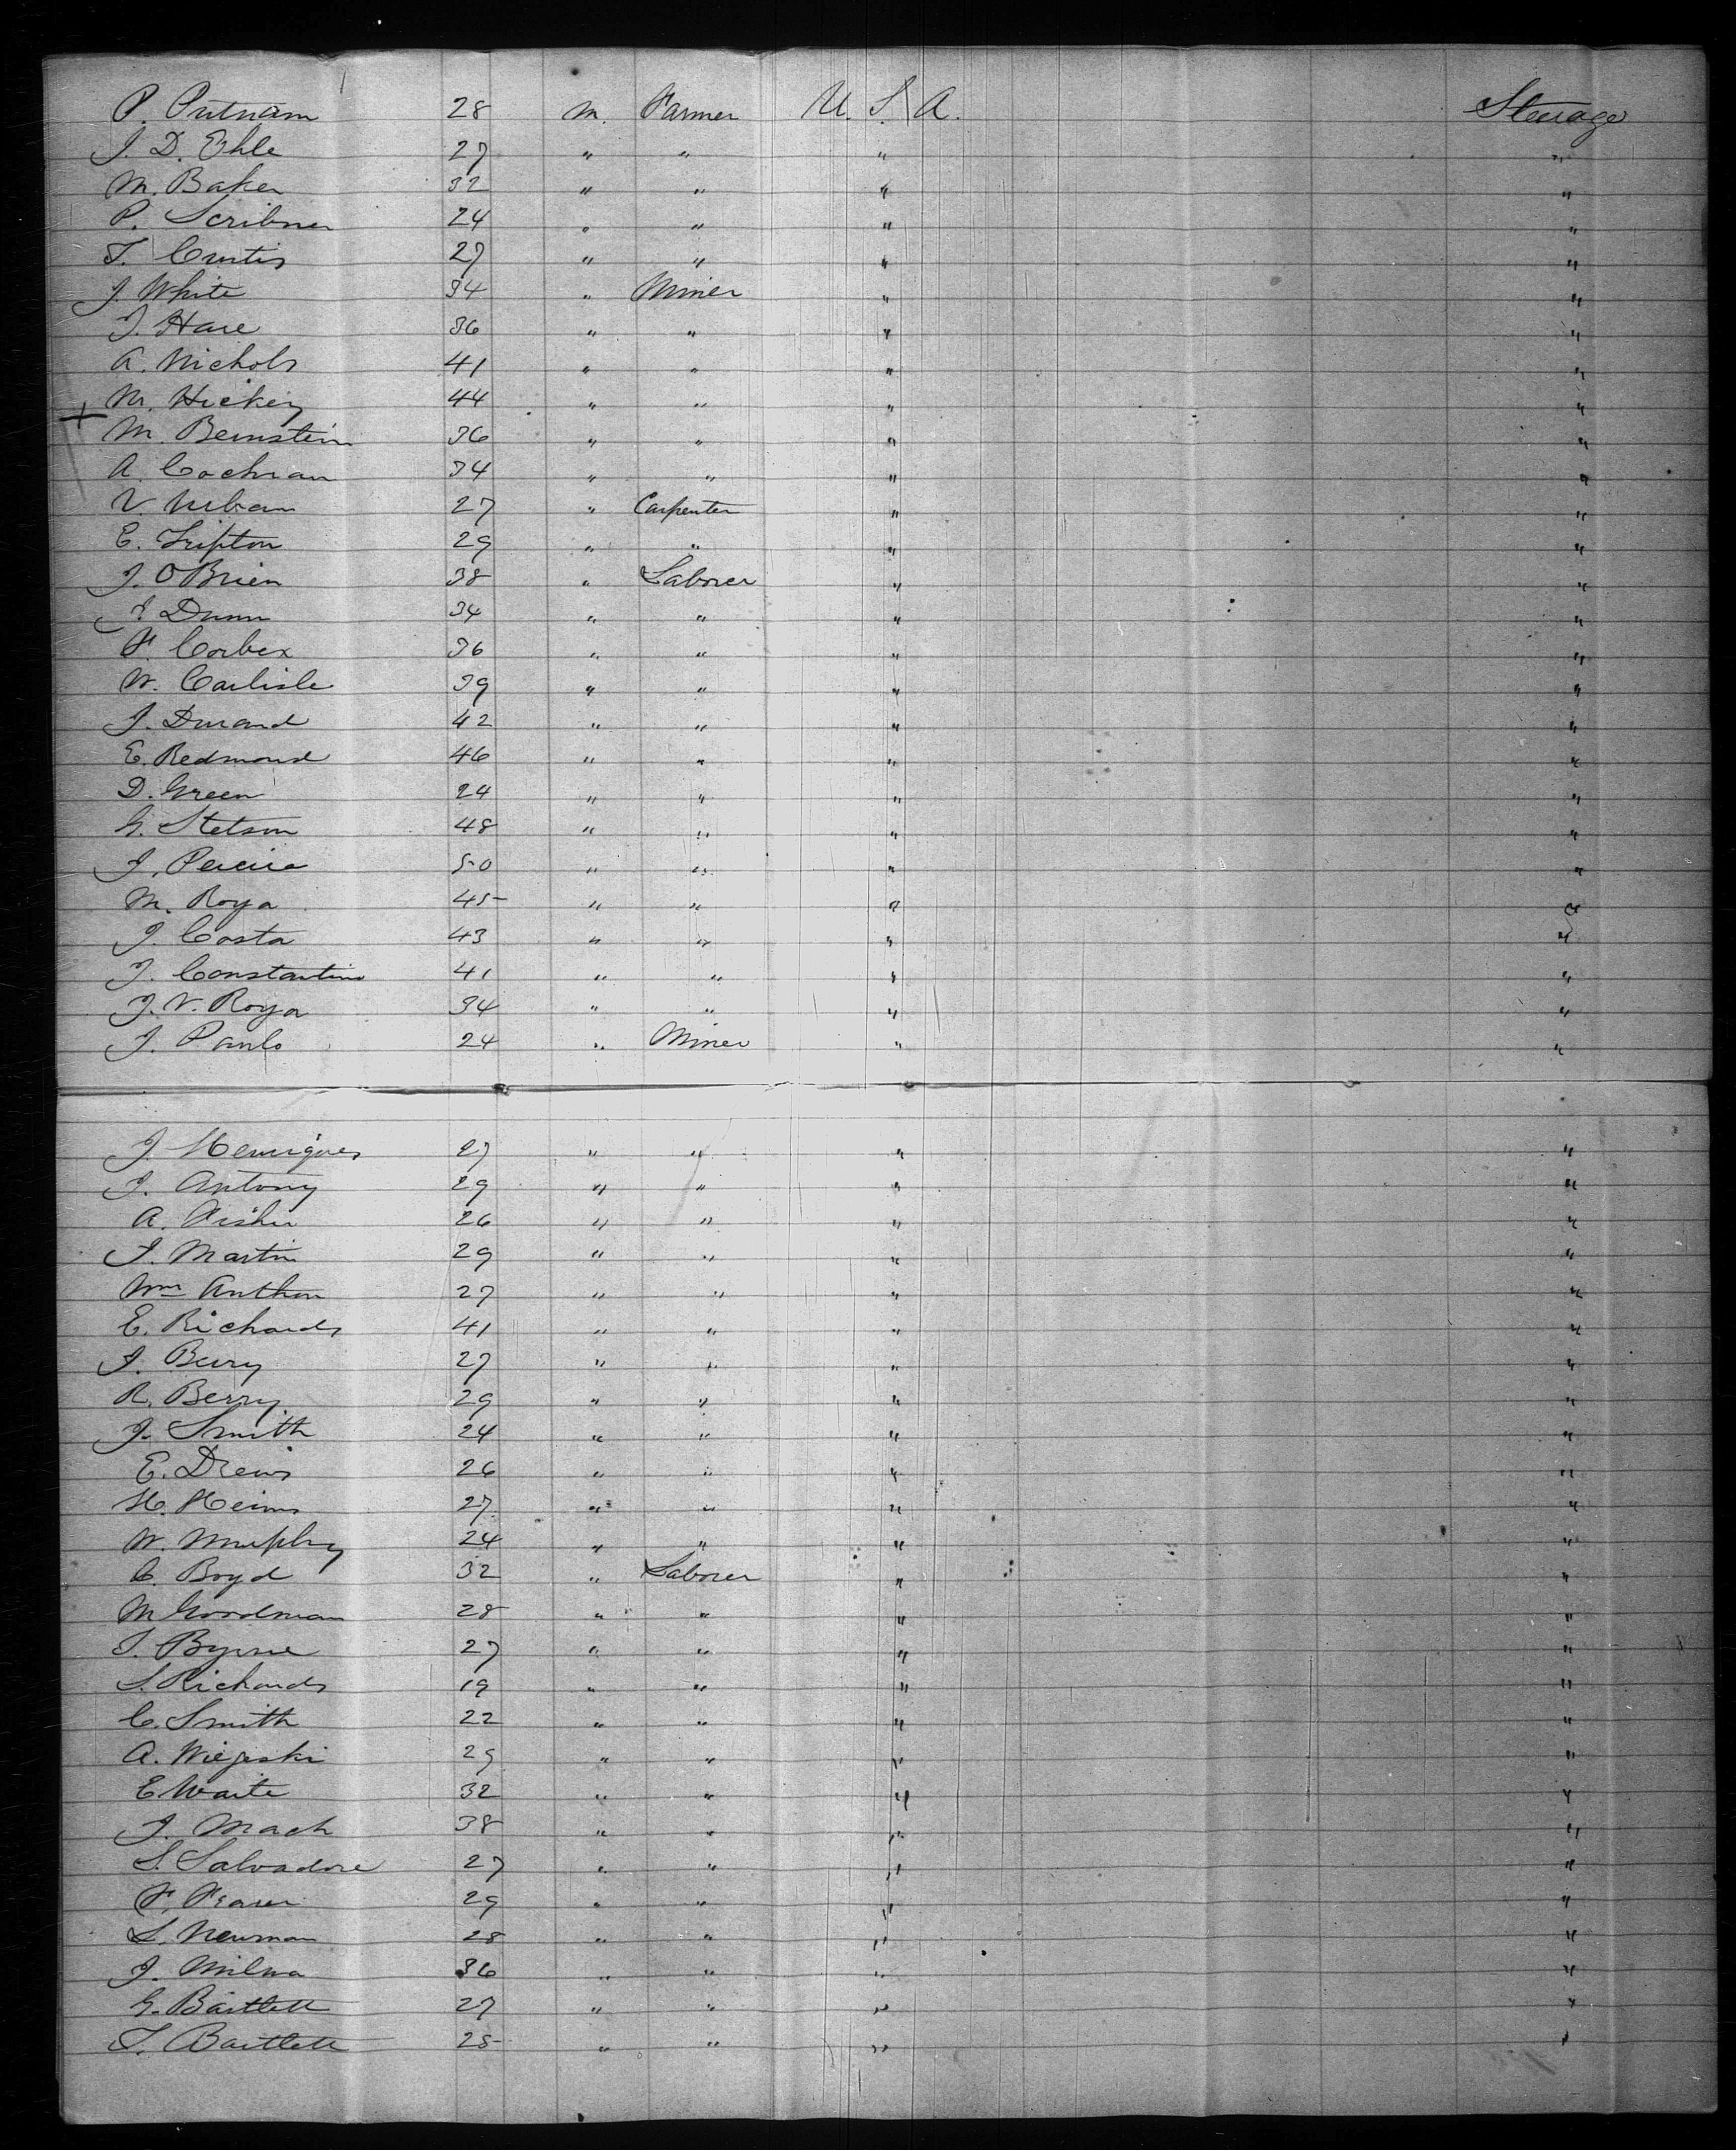 P. Putnam 28 m. Farmer U. S. A. Steerage
J. D. Ehle 27 " " " "
M. Baker 32 " " " "
P. Scribner 24 " " " "
T. Curtis 27 " " " "
J. White 34 " Miner " "
J. Hare 36 " " " "
A. Nichols 41 " " " "
M. Hickey 44 " " " "
+ M. Bernstein 36 " " " "
A. Cochran 34 " " " "
V. Urban 27 " Carpenter " "
E. Tripton 29 " " " "
J. O'Brien 38 " Laborer " "
J. Dunn 34 " " " "
F. Corbex 36 " " " "
W. Carlisle 39 " " " "
J. Durand 42 " " " "
E. Redmond 46 " " " "
D. Green 24 " " " "
G. Stetson 48 " " " "
J. Pereira 50 " " " "
M. Roya 45 " " " "
J. Costa 43 " " " "
J. Constantino 41 " " " "
J. V. Roya 34 " " " "
J. Paulo 24 " Miner " "
J. Henriques 27 " " " "
J. Antony 29 " " " "
A. Fisher 26 " " " "
J. Martin 29 " " " "
Wm Anthon 27 " " " "
E. Richards 41 " " " "
J. Bury 27 " " " "
R. Berry 29 " " " "
J. Smith 24 " " " "
E. Drews 26 " " " "
H. Heims 27 " " " "
W. Murphy 24 " " " "
C. Boyd 32 " Laborer " "
M Goodman 28 " " " "
J. Byrne 27 " " " "
S. Richards 19 " " " "
C. Smith 22 " " " "
A. 29 " " " "
E Waite 32 " " " "
J. Mach 38 " " " "
S. Salvadore 27 " " " "
F. Fraser 29 " " " "
L. Newman 28 " " " "
J. Milna 36 " " " "
G. Bartlett 27 " " " "
T. Bartlett 25 " " " "